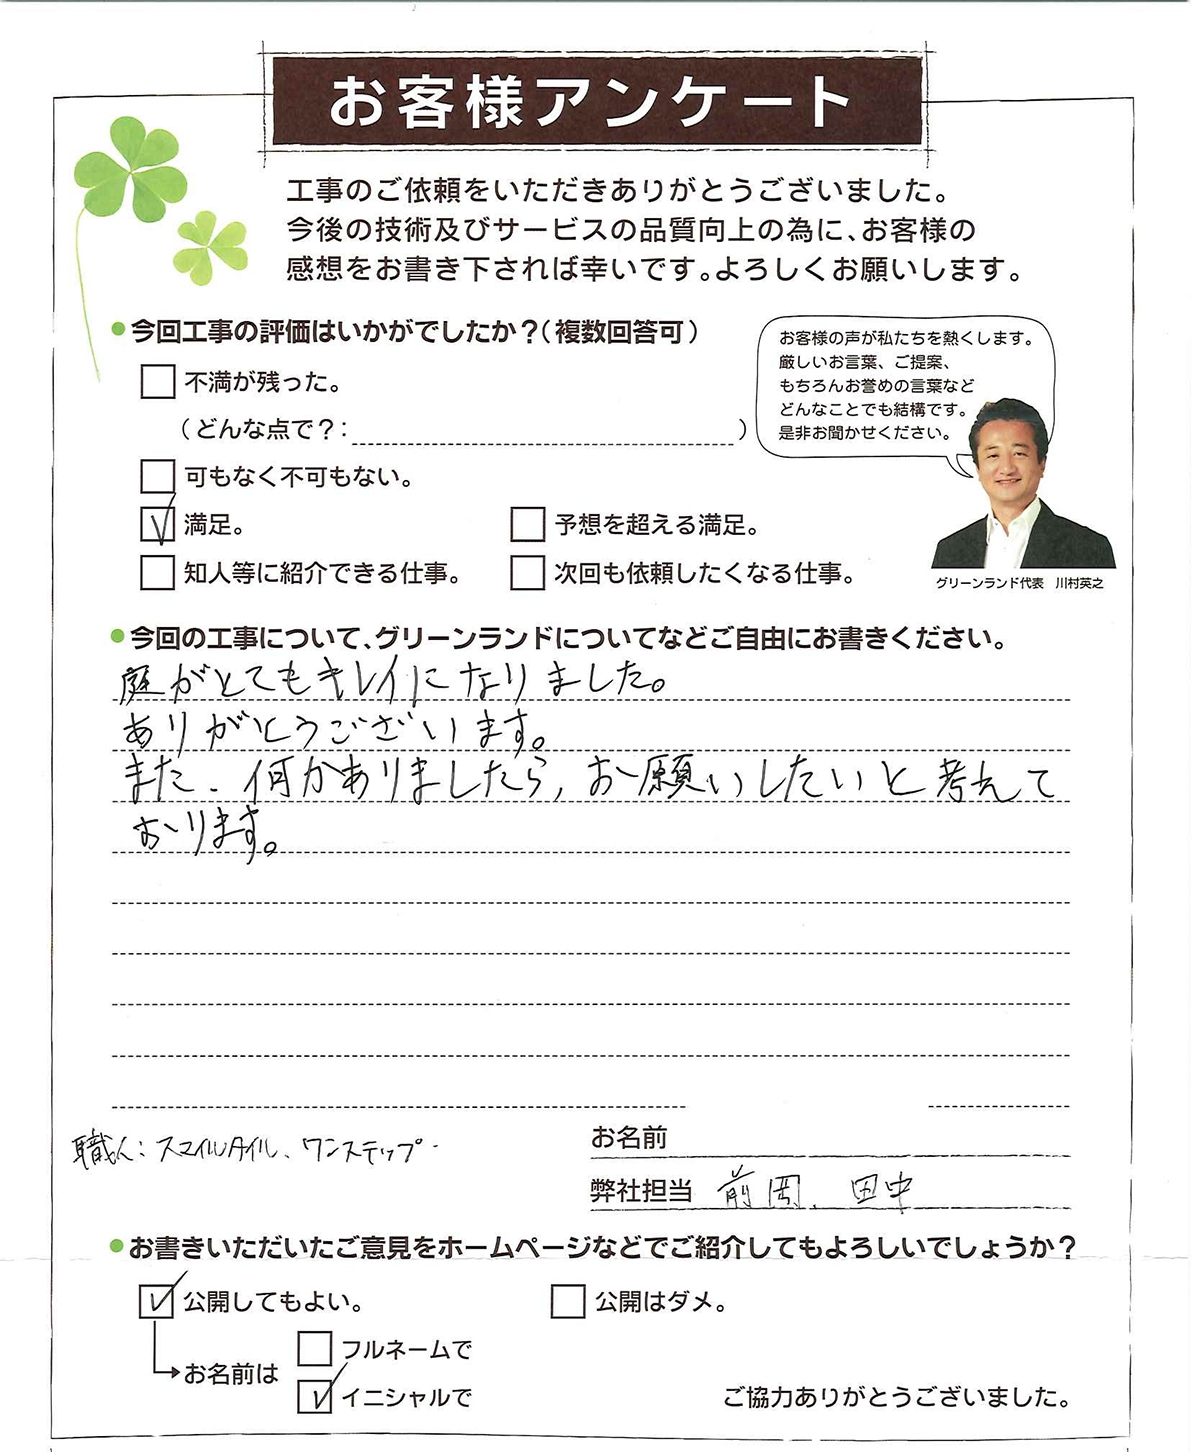 お客様アンケート
工事のご依頼をいただきありがとうございました。
今後の技術及びサービスの品質向上の為に、お客様の
感想をお書き下されば幸いです。よろしくお願いします。
●今回工事の評価はいかがでしたか？（複数回答可）
お客様の声が私たちを熱くします。
厳しいお言葉、ご提案、
もちろんお誉めの言葉など
どんなことでも結構です。
是非お聞かせください。
不満が残った。
（どんな点で？：　）
可もなく不可もない。
満足。　予想を超える満足。
知人等に紹介できる仕事。　次回も依頼したくなる仕事。
グリーンランド代表　川村英之
●今回の工事について、グリーンランドについてなどご自由にお書きください。
庭がとてもキレイになりました。
ありがとうございます。
また、何かありましたら、お願いしたいと考えて
おります。
職人：スマイルタイル、ワンステップ
お名前
弊社担当　前岡、田中
●お書きいただいたご意見をホームページなどでご紹介してもよろしいでしょうか？
公開してもよい。　公開はダメ。
フルネームで
お名前は
イニシャルで
ご協力ありがとうございました。